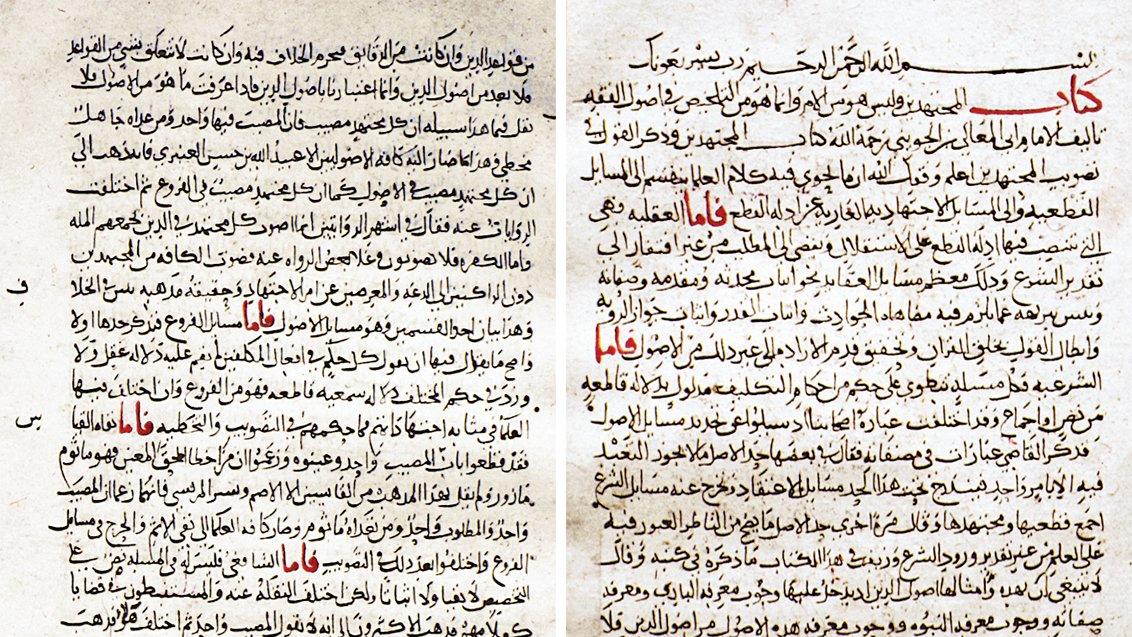 بسم الله الرحمن الرحيم رب يسر بعونك
كتاب المجتهدين وليس هو من الام وانما هو من التلخيص في اصول الفقه
تاليف الامام ابي المعالي بن الجويني رحمة الله كتاب المجتهدين وذكر القول في
تصويب المجتهدين اعلم وفقك الله ان ما يحوي فيه كلام العلما ينقسم الى المسايل
القطعية والى المسايل الاجتهادية العارية عن ادلة القطع فاما العقلية فهي
التي تنتصب فيها ادلة القطع على الاستقلال وتفضي الى المطلب من غير افتقار الى
تقدير الشرع وذلك معظم مسايل العقايد نحو اثبات محدثه وقدمه وصفاته
وتبيين تنزيهه عما يلزم فيه مضاهاة الحوادث واثبات القدر واثبات جواز الروية
وابطال القول بخلق القران وتحقيق قدم الارادة الى غير ذلك من الاصول فاما
الشرعية فكل مسلة تنطوي على حكم من احكام التكليف مدلول بدلالة قاطعة
من نص او اجماع وقد اختلفت عبارة اصحابنا اذ سيلوا عن تحديد مسايل الاصول
فذكر القاضي عبارات في مصنفاته فقال في بعضها حد الاصل ما لا يجوز التعبد
فيه الا بامر واحد فيندرج تحت هذا الحد مسايل الاعتقاد وتخرج عنه مسايل الشرع
اجمع قطعيها ومجتهدها وقال مرة اخرى حد الاصل ما يصح من الناظر العثور فيه
على العلم من غير تقدير ورود الشرع وزيف في هذا الكتاب ما ذكره في كتبه وقال
لا ينبغي ان بهذه وامثالها اصول الدين اذ يدخل عليها وجوب معرفة الباري ومعرفة
صفاته ووجوب معرفة النبوة فوجوب معرفة هذه الاصول من اصول الدين فلا
من قواعد الدين وان كانت من الدقايق فيحرم الخلاف فيه وان كانت لا تتعلق بشي من القواعد
فلا يعد من اصول الدين وانما اعتبارنا باصول الدين فاذا عرفت ما هو من الاصول فلا
نقل فيما هذا سبيله ان كل مجتهد مصيب فان المصيب فيها واحد ومن عداه جاهل
مخطي فهذا ما صار اليه كافة الاصوليين الا عبيد الله بن حسن العنبري فانه ذهب الى
ان كل مجتهد مصيب في الاصول كما ان كل مجتهد مصيب في الفروع ثم اختلفت
الروايات عنه فقال في اشهر الروايتين انما اصوب كل مجتهد في الدين تجمعهم الملة
واما الكفرة فلا يصوبون وغلا بعض الرواة عنه فصوب الكافة من المجتهدين
دون الراكنين الى الدعة والمعرضين عن امر الاجتهاد وحقيقة مذهبه تبين في الخلا
وهذا بيان احد القسمين وهو مسايل الاصول فاما مسايل الفروع فنذكر حدها اولا
واصح ما يقال فيها ان نقول كل حكم في افعال المكلفين لم تقم عليه دلالة عقل ولا
ورد في حكم المختلف فيه دلالة سمعية قاطعة فهو من الفروع وان اختلف فيها
العلما في مثابة اجتهاداتهم فما حكمهم في التصويب والتخطية فاما نفاة القيا
فقد قطعوا بان المصيب واحد وعينوه وزعموا ان من اخطا الحق المعين فهو ماثوم
مازور ولم يقل بهذا المذهب من القايسين الا الاصم وبشر المريسي فانهما زعما ان المصيب
واحد والمطلوب واحد ومن تعداه ماثوم وصار كافة العلما الى نفي الاثم والحرج في مسايل
الفروع واختلفوا بعد ذلك في التصويب فاما الشافعي فليس له في المسلة نص على
التخصيص لا نفيا ولا اثباتا ولكن اختلف النقلة عنه والمستنبطون في قضايا
كلامه فذهب الاكثرون الى انه يقول المصيب واحد ثم اختلف هولا فذهب
ف
س